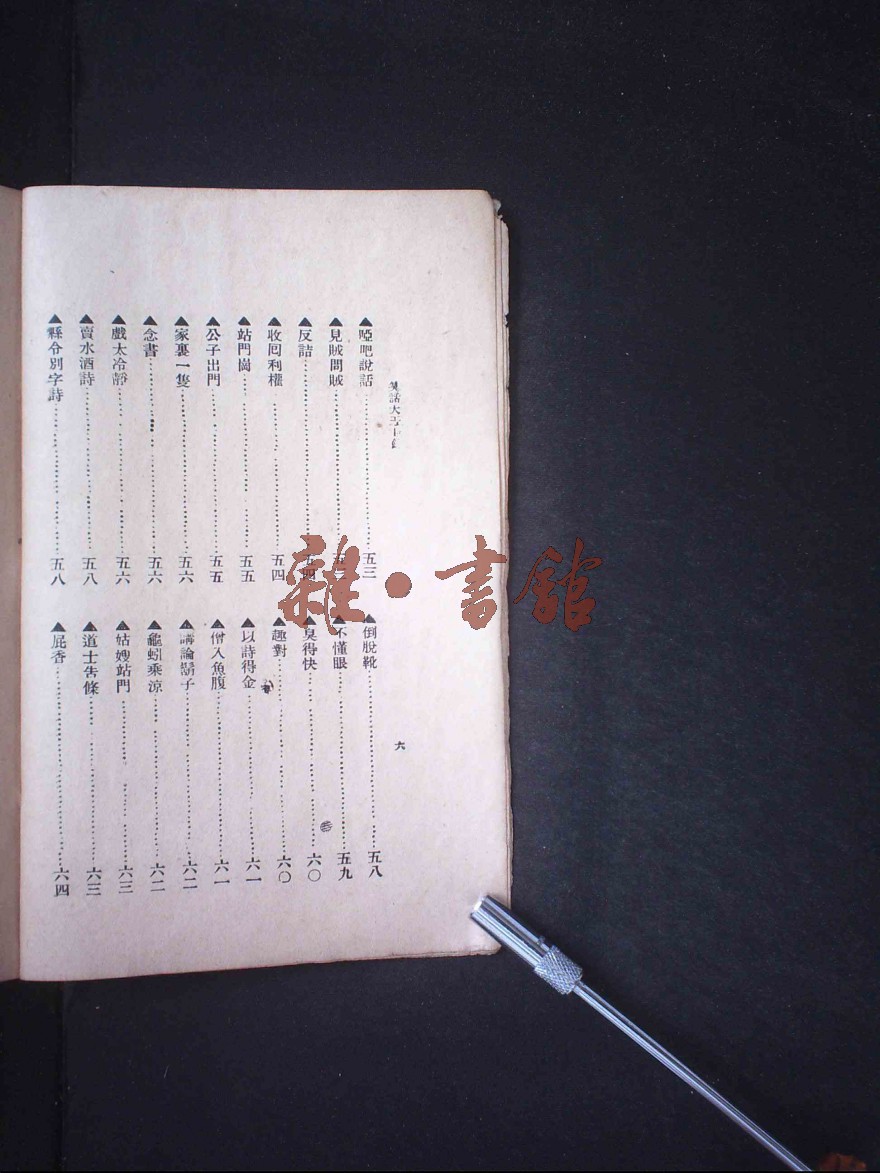 笑話大王目錄
六
▲啞吧說話……五三
▲見賊問賊……五三
▲反詰……五四
▲收囘利權……五四
▲站門崗……五五
▲公子出門……五五
▲家裏一隻……五六
▲念書……五六
▲戲太冷靜……五六
▲賣水酒詩……五八
▲縣令別字詩……五八
▲倒脫靴……五八
▲不懂眼……五九
▲臭得快……六〇
▲趣對……六〇
▲以詩得金……六一
▲僧入魚腹……六一
▲講論鬍子……六二
▲龜蚓乘涼……六二
▲姑嫂站門……六三
▲道士吿條……六三
▲屁香……六四
雜·書館